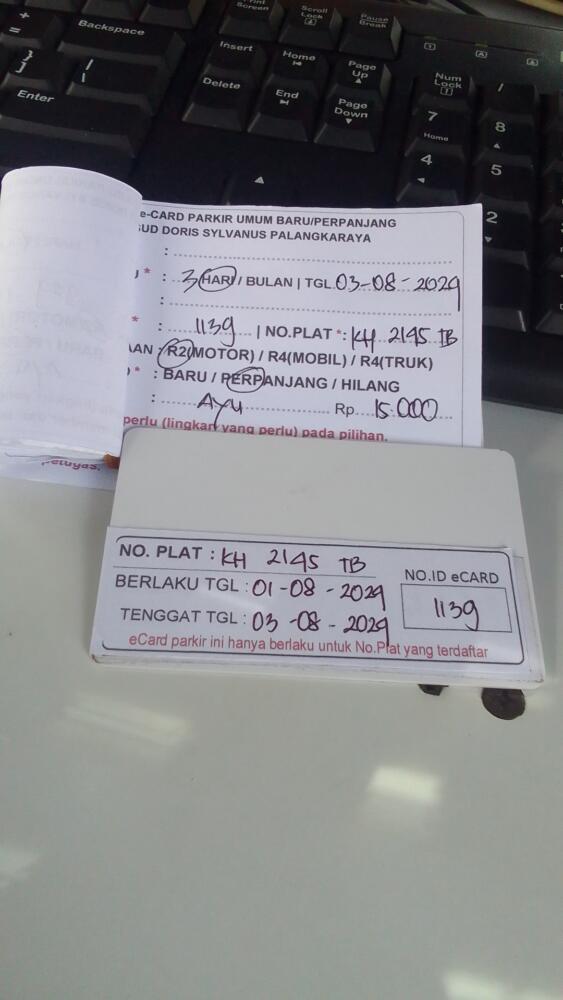 +
=
Backspace
Print
Screen
Scroll
Lock
Pause
Break
}
]
|
\
Insert
Home
Page
Up
Num
Lock
/
Enter
Delete
End
Page
Down
7
Home
8
4
5
2
e-CARD PARKIR UMUM BARU/PERPANJANG
SUD DORIS SYLVANUS PALANGKARAYA
:
* : 3 HARI / BULAN | TGL 03-08-2029
:
* : 1139 | NO.PLAT * : KH 2145 TB
AAN : R2(MOTOR) / R4(MOBIL) / R4(TRUK)
* : BARU / PERPANJANG / HILANG
: AYU Rp. 15.000
perlu (lingkari yang perlu) pada pilihan.
petugas.
NO. PLAT : KH 2145 TB
BERLAKU TGL : 01-08-2029
TENGGAT TGL : 03-08-2029
NO.ID eCARD
1139
eCard parkir ini hanya berlaku untuk No.Plat yang terdaftar